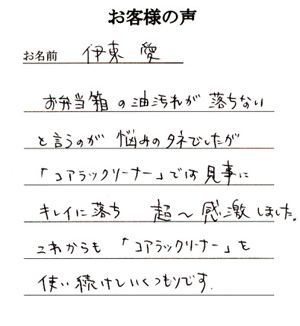 お客様の声
お名前 伊東 愛
お弁当箱の油汚れが落ちない
と言うのが悩みのタネでしたが
「コアラックリーナー」では見事に
キレイに落ち 超〜感激しました。
これからも「コアラックリーナー」を
使い続けていくつもりです。